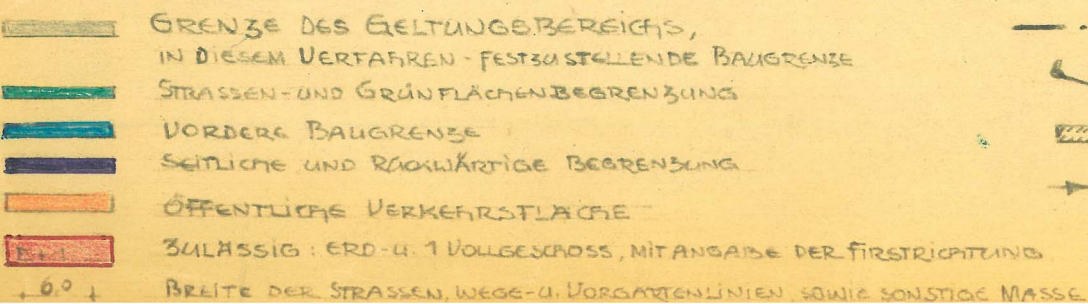 GRENZE DES GELTUNGSBEREICHS,
IN DIESEM VERFAHREN - FESTZUSTELLENDE BAUGRENZE
STRASSEN- UND GRÜNFLÄCHENBEGRENZUNG
VORDERE BAUGRENZE
SEITLICHE UND RÜCKWÄRTIGE BEGRENZUNG
ÖFFENTLICHE VERKEHRSFLÄCHE
E+1 ZULÄSSIG: ERD- U. 1 VOLLGESCHOSS, MIT ANGABE DER FIRSTRICHTUNG
6.0 BREITE DER STRASSEN, WEGE- U. VORGARTENLINIEN SOWIE SONSTIGE MASSE